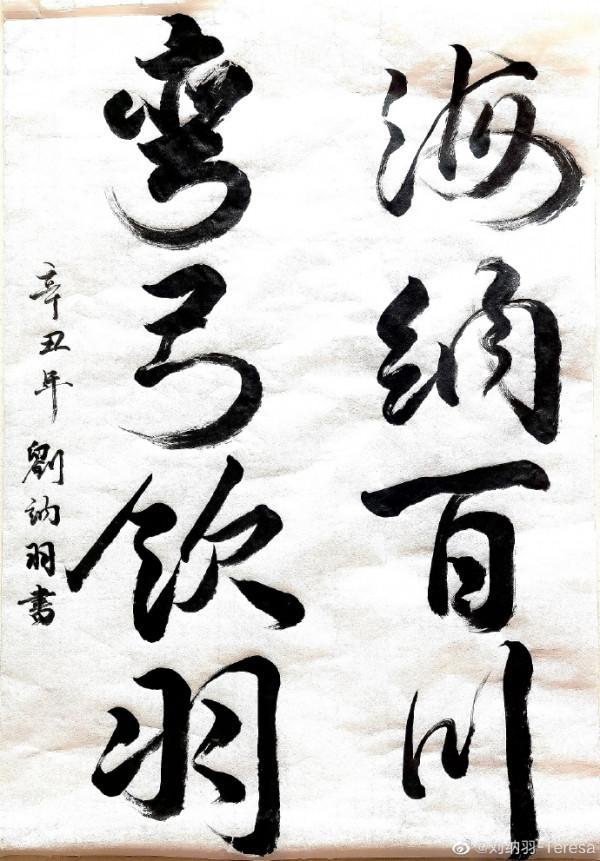 海納百川
彎弓飲羽
辛丑年 劉納羽書
@刘纳羽-Teresa